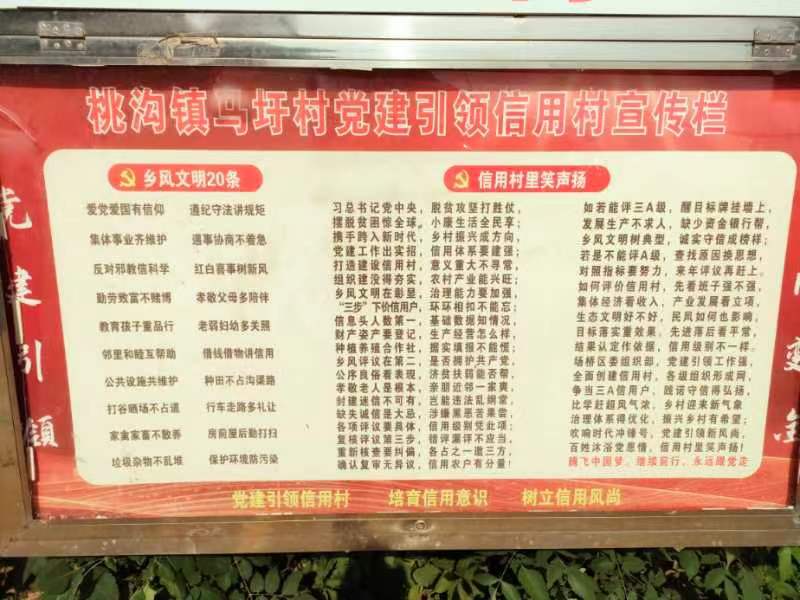 桃沟镇马圩村党建引领信用村宣传栏
乡风文明20条
爱党爱国有信仰 遵纪守法讲规矩
集体事业齐维护 遇事协商不着急
反对邪教信科学 红白喜事树新风
勤劳致富不赌博 孝敬父母多陪伴
教育孩子重品行 老弱妇幼多关照
邻里和睦互帮助 借钱借物讲信用
公共设施共维护 种田不占沟渠路
打谷晒场不占道 行车走路多礼让
家禽家畜不散养 房前屋后勤打扫
垃圾杂物不乱堆 保护环境防污染
信用村里笑声扬
习总书记党中央，脱贫攻坚打胜仗，
摆脱贫困惊全球，小康生活全民享；
携手跨入新时代，乡村振兴成方向，
党建工作出实招，信用体系要建强；
打造建设信用村，意义重大不寻常，
组织建没得夯实，农村产业能兴旺；
乡风文明在彰显，治理能力要加强，
“三步”下价信用户，环环相扣不能忘；
信息头人数第一，基础数据知情况，
财产资产要登记，生产经营怎么样，
种植养殖合作社，据实填报不能慌；
乡风评议在第二，是否拥护共产党，
公序良俗看表现，济贫扶弱能否帮，
孝敬老人是根本，奈丽近邻一家爽，
封建迷信不可有，岂能违法乱纲常，
缺失诚信是大忌，涉嫌黑恶苦果尝，
各项评议要具体，信用级别凭此项；
复核评议第三步，错评漏评不应当，
重新核查要纠偏，各占之一邀三方，
确认复审无异议，信用农户有分量！
如若能评三A级，醒目标牌挂墙上，
发展生产不求人，缺少资金银行帮，
乡风文明树典型，诚实守信成榜样；
若是不能评A级，查找原因换思想，
对照指标要努力，来年评议再赶上。
如何评价信用村，先看班子强不强，
集体经济看收入，产业发展看立项，
生态文明好不好，民风如何也影响，
目标落实重效果，先进落后看平常，
结果认定作依据，信用级别不一样。
场桥区委组织部，党建引领工作强，
全面创建信用村，各级组织形成网，
争当三A信用户，践诺守信得弘扬，
比学赶超风气浓，乡村迎来新气象
治理体系得优化，振兴乡村有希望；
吹响时代冲锋号，党建引领新风尚，
百姓沐浴党恩情，信用村里笑声扬！
腾飞中国梦，继续前行、永远跟党走
党建引领
党建引领信用村 培育信用意识 树立信用风尚